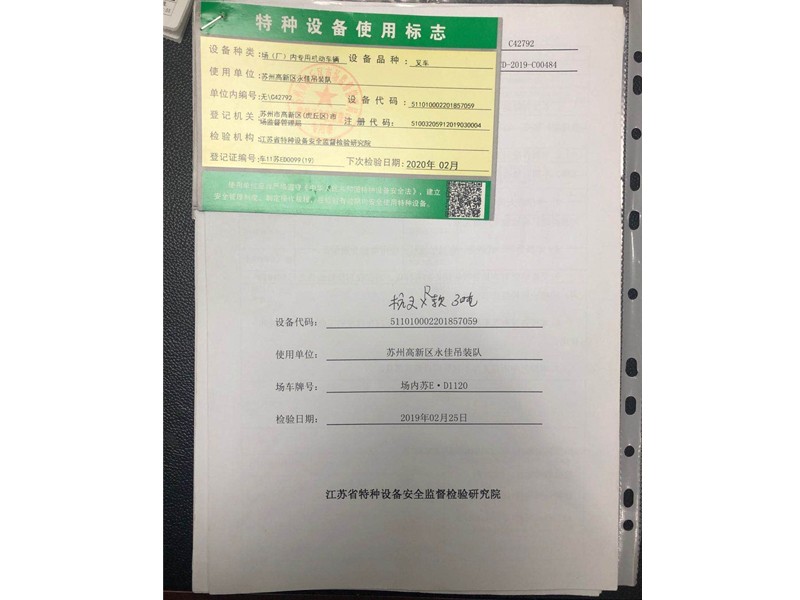 特种设备使用标志
设备种类:场(厂)内专用机动车辆 设备品种:叉车
使用单位:苏州高新区永佳吊装队
单位内编号:无\C42792 设备代码:511010002201857059
登记机关 苏州市高新区(虎丘区)市场监督管理局 注册代码:51003205912019030004
检验机构:江苏省特种设备安全监督检验研究院
登记证编号:车11苏ED0099(19) 下次检验日期:2020年 02月
C42792
D-2019-C00484
杭叉R款 30吨
设备代码: 511010002201857059
使用单位: 苏州高新区永佳吊装队
场车牌号: 场内苏E·D1120
检验日期: 2019年02月25日
江苏省特种设备安全监督检验研究院